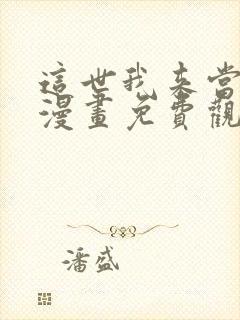 這世我来當
漫畫免費觀
潘盛